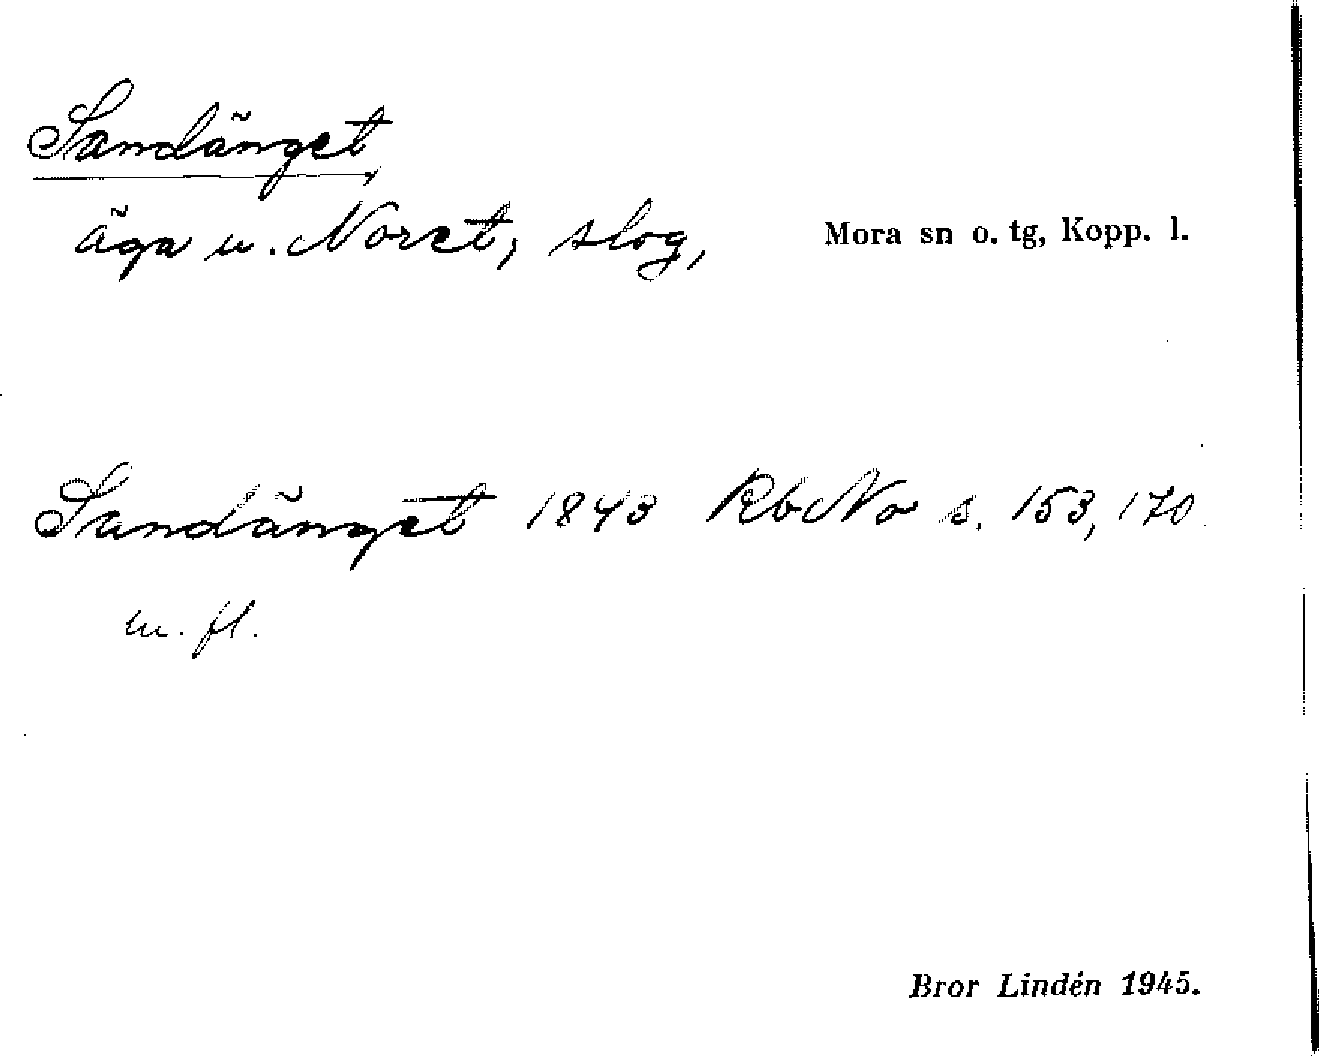 Sandänget,
äga u. Noret, slog, Mora sn o. tg, Kopp. l.
Sandänget 1843 RbNo s. 153, 170
m. fl.
Bror Lindén 1945.